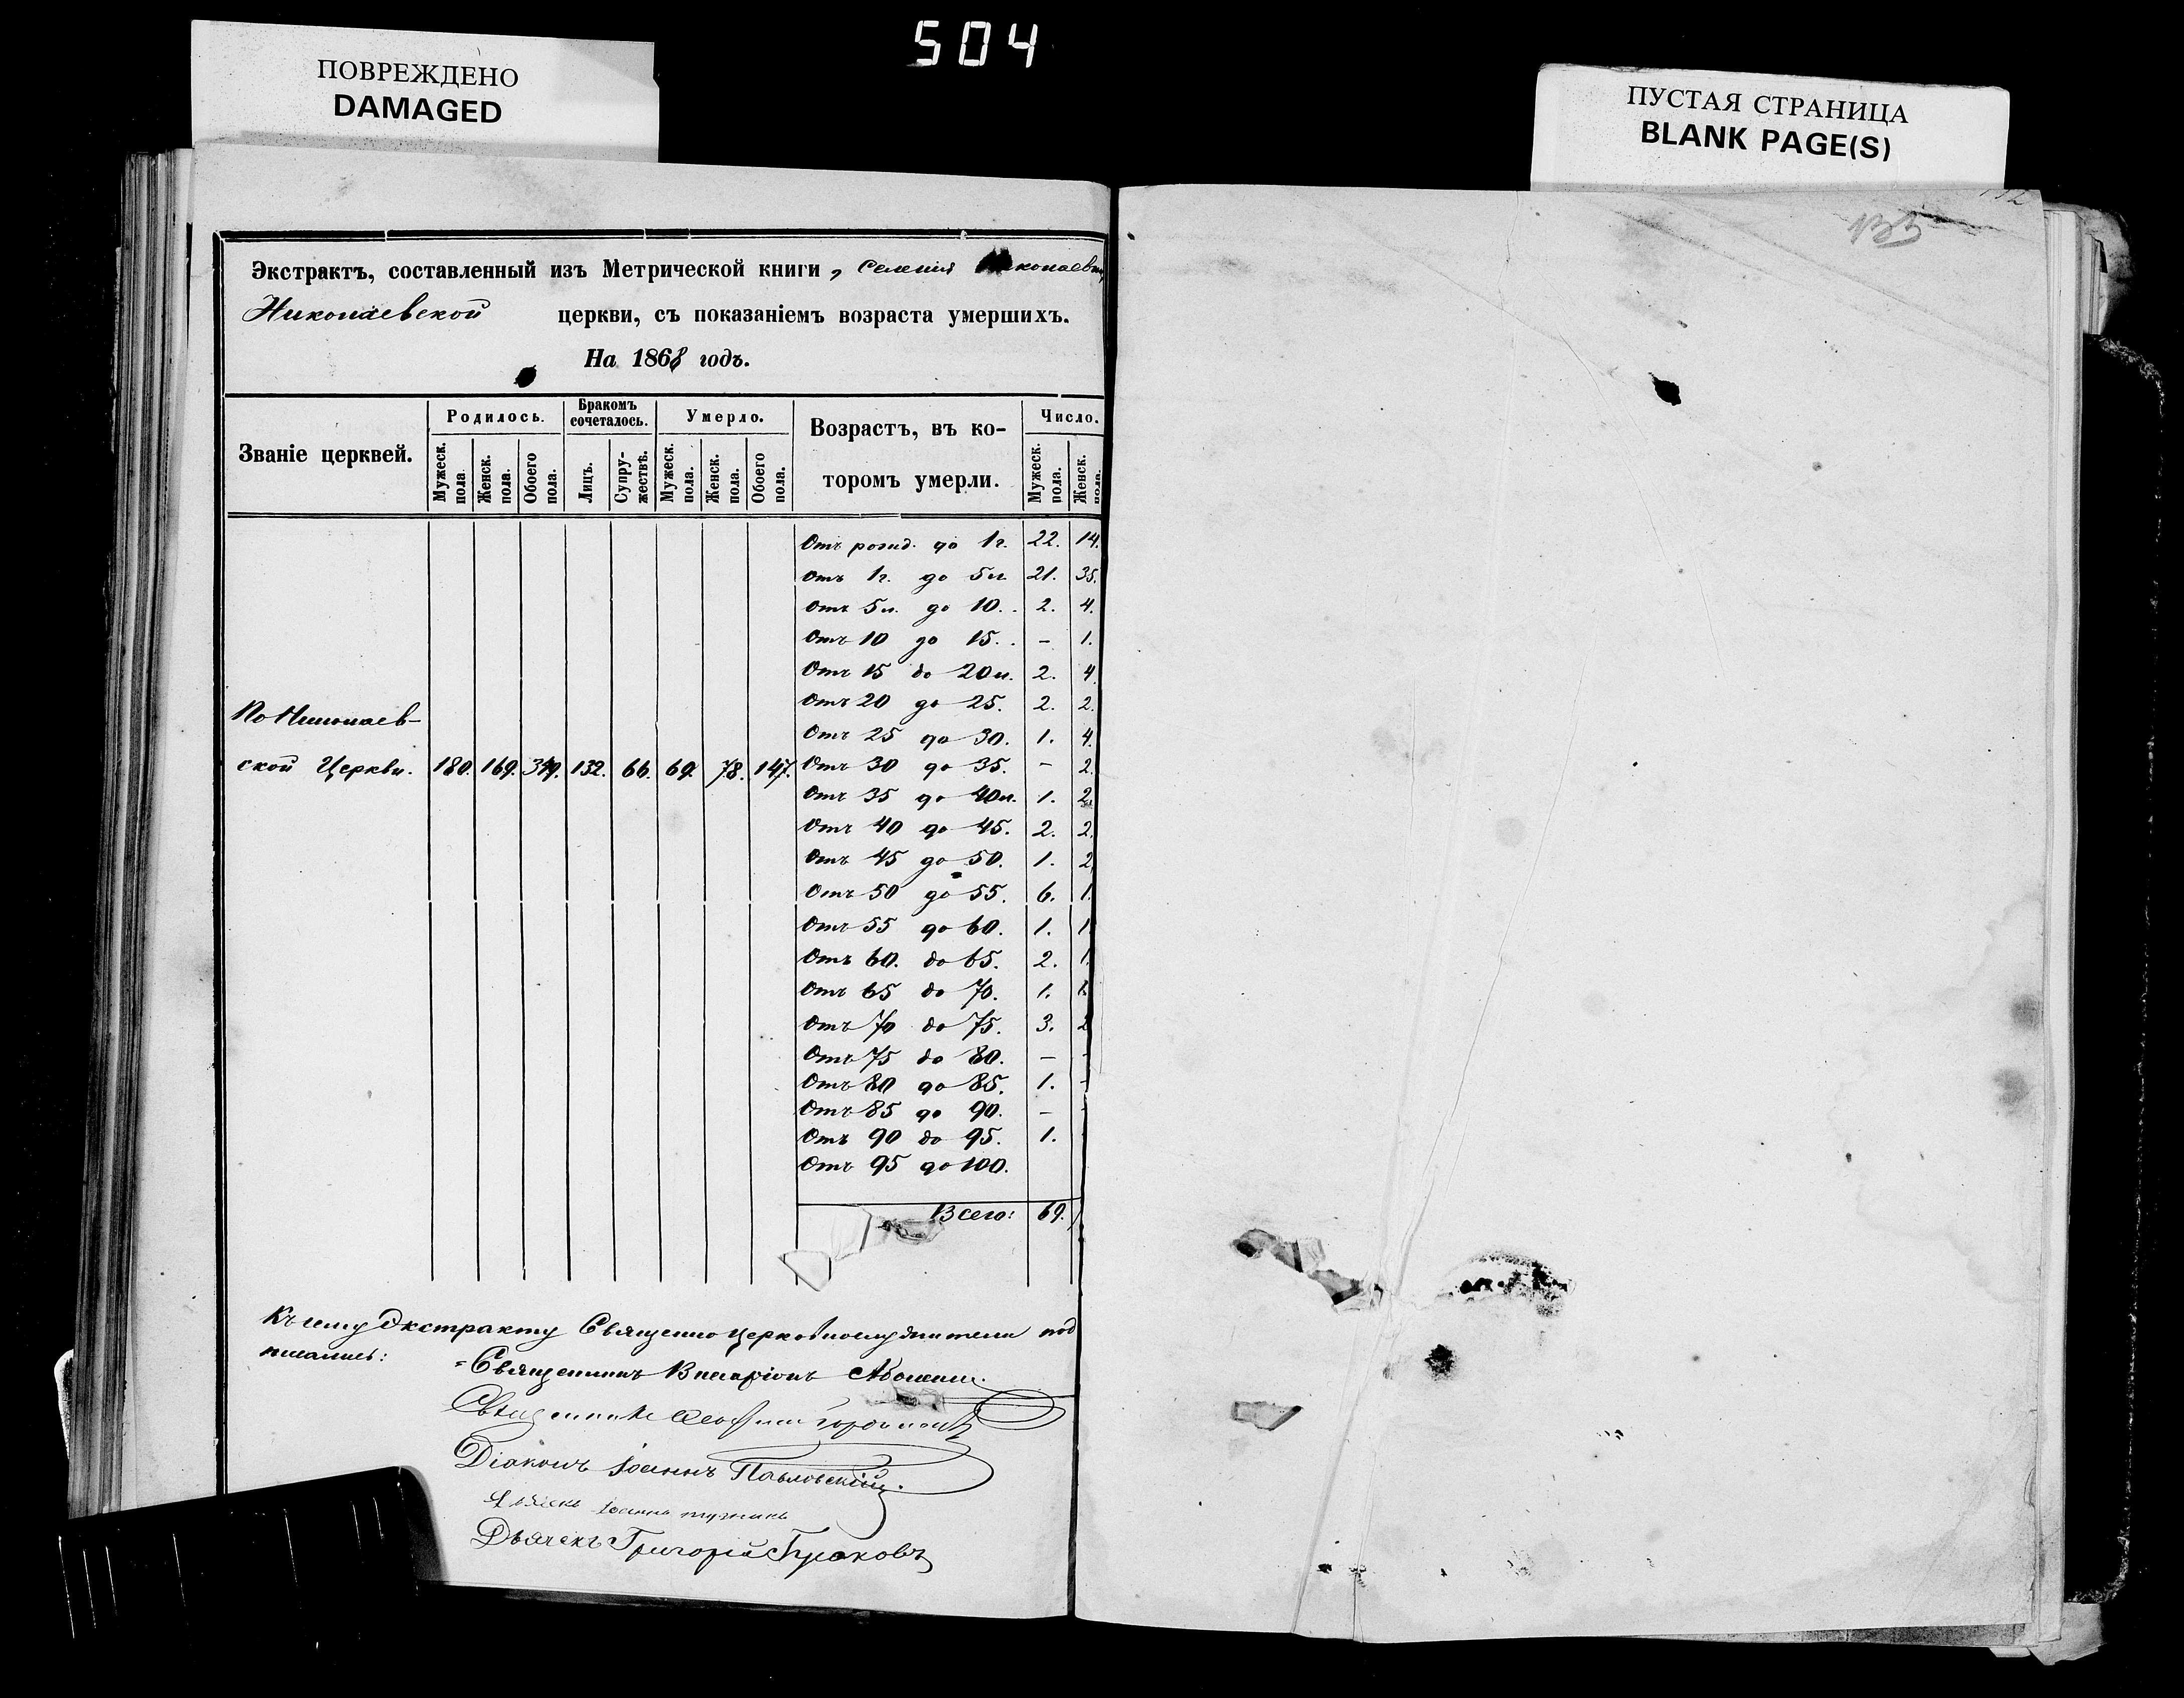 504
ПОВРЕЖДЕНО
DAMAGED
ПУСТАЯ СТРАНИЦА
BLANK PAGE(S)
135
Экстрактъ, составленный изъ Метрической книги, селенія
Николаевской церкви, съ показаніемъ возраста умершихъ.
На 1868 годъ.
Званіе церквей.
Родилось.
Бракомъ сочеталось.
Умерло.
Возрастъ, въ которомъ умерли.
Число.
Мужеск. пола.
Женск. пола.
Обоего пола.
Лицъ.
Супружествъ.
Мужеск. пола.
Женск. пола.
Обоего пола.
Мужеск. пола.
Женск. пола.
Отъ рожд. до 1г. 22. 14.
Отъ 1г. до 5л. 21. 35.
Отъ 5л. до 10. 2. 4.
Отъ 10 до 15. – 1.
Отъ 15 до 20л. 2. 4.
Отъ 20 до 25. 2. 2.
Отъ 25 до 30. 1. 4.
По Николаев-
ской Церкви. 180. 169. 349. 132. 66. 69. 78. 147. Отъ 30 до 35. – 2.
Отъ 35 до 40л. 1. 2.
Отъ 40 до 45. 2. 2.
Отъ 45 до 50. 1. 2.
Отъ 50 до 55. 6. 1.
Отъ 55 до 60. 1. 1.
Отъ 60. до 65. 2. 1.
Отъ 65 до 70. 1.
Отъ 70 до 75. 3. 2
Отъ 75 до 80. – -
Отъ 80 до 85. 1. -
Отъ 85 до 90. –
Отъ 90 до 95. 1.
Отъ 95 до 100.
Всего: 69.
Къ сему Экстракту Священноцерковнослужители под
писались:
Священникъ
Священникъ
Діаконъ Іоаннъ Павловскій.
Іоаннъ
Дьячекъ Григорій